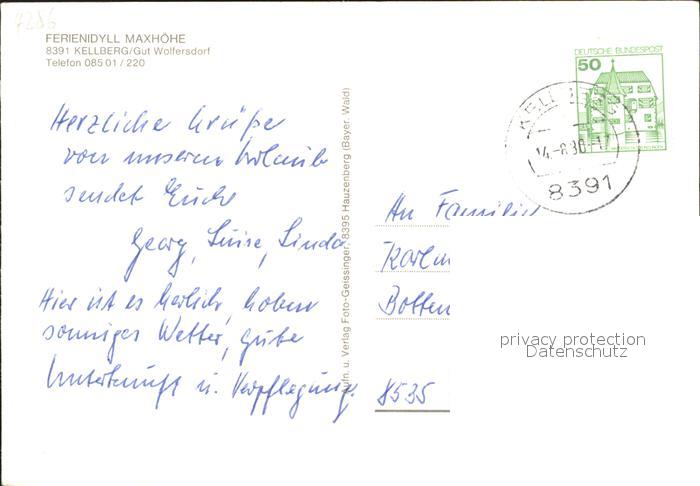 FERIENIDYLL MAXHÖHE
8391 KELLBERG/Gut Wolfersdorf
Telefon 085 01 / 220
Herzliche Grüße
von unserem Urlaub
sendet Euch
Georg, Luise, Linda
Hier ist es herrlich, haben
sonniges Wetter, gute
Unterkunft u. Verpflegung.
Aufn. u. Verlag Foto-Geissinger, 8395 Hauzenberg (Bayer. Wald)
DEUTSCHE BUNDESPOST
50
8391
An Familie
8535
privacy protection
Datenschutz